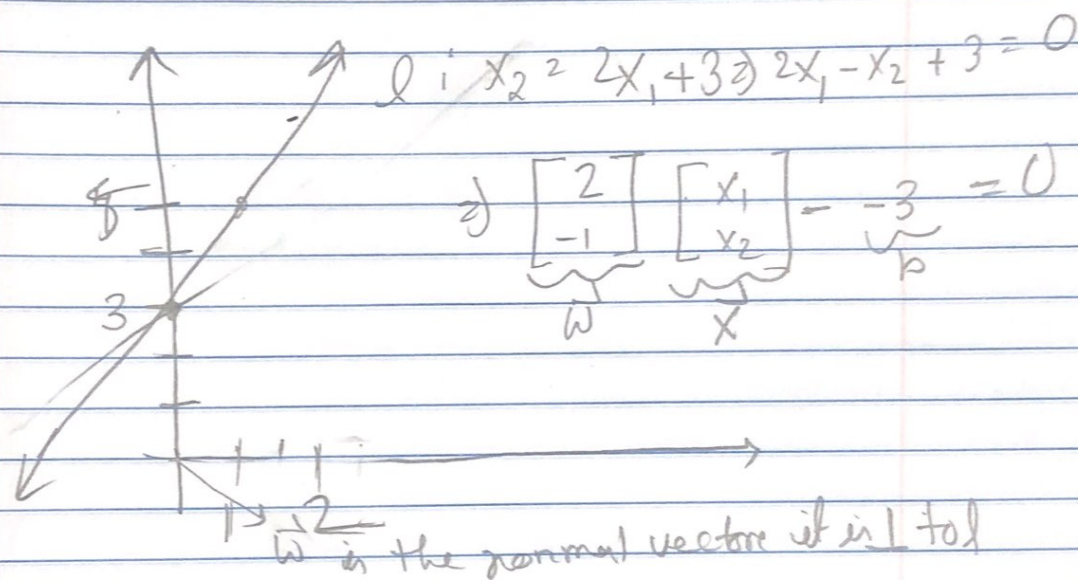 l : x₂ = 2x₁ + 3 ⇒ 2x₁ - x₂ + 3 = 0
5
⇒ [2 -1] [x₁ x₂] - -3 = 0
w x b
3
1 2
w is the normal vector it is ⊥ to l